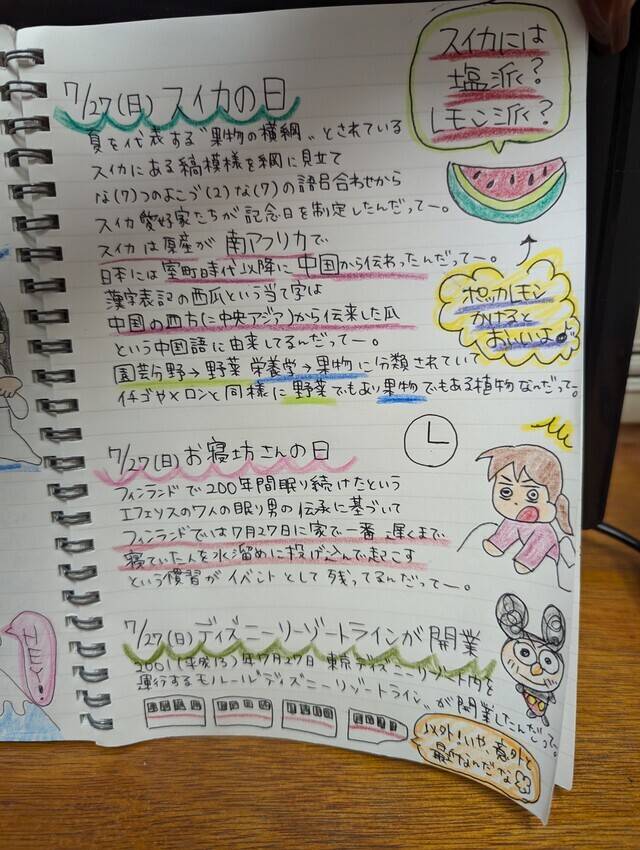 スイカには
塩派？
レモン派？
7/27(日) スイカの日
夏を代表する“果物の横綱”とされている
スイカにある縞模様を綱に見立て
な(7)つのよこづ(2)な(7)の語呂合わせから
スイカ愛好家たちが記念日を制定したんだってー。
スイカは原産が南アフリカで
日本には室町時代以降に中国から伝わったんだってー。
漢字表記の西瓜という当て字は
中国の西方(に中央アジア)から伝来した瓜
という中国語に由来してるんだってー。
園芸分野→野菜 栄養学→果物に分類されていて
イチゴやメロンと同様に野菜でもあり果物でもある植物なんだってー。
ポッカレモン
かけると
おいしいよ♪
7/27(日) お寝坊さんの日
フィンランドで200年間眠り続けたという
エフェソスの7人の眠り男の伝承に基づいて
フィンランドでは7月27日に家で一番遅くまで
寝ていた人を水溜めに投げ込んで起こす
という慣習がイベントとして残ってるんだってー。
7/27(日) ディズニーリゾートラインが開業
2001(平成13)年7月27日 東京ディズニーリゾート内を
運行するモノレール“ディズニーリゾートライン”が開業したんだってー。
以外！いや、意外と
最近なんだな
HEY!